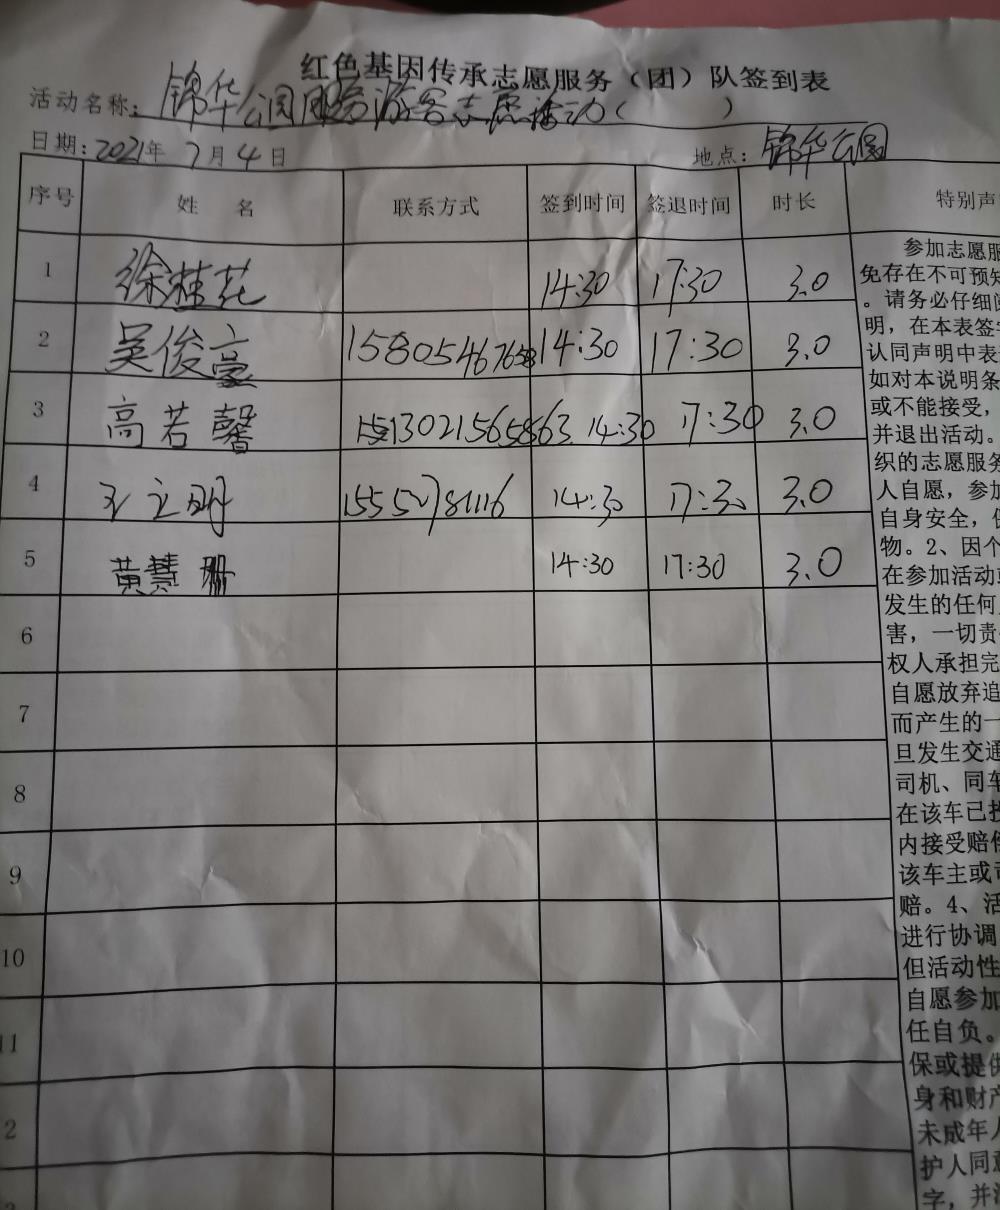 红色基因传承志愿服务（团）队签到表
活动名称：锦华公园服务游客志愿活动（ ）
日期：2021年7月4日 地点：锦华公园
序号 姓 名 联系方式 签到时间 签退时间 时长 特别声
1 徐桂花 14:30 17:30 3.0
2 吴俊豪 14:30 17:30 3.0
3 高若馨 14:30 17:30 3.0
4 王立明 14:30 17:30 3.0
5 黄慧珊 14:30 17:30 3.0
6
7
8
9
10
11
2
参加志愿服
免存在不可预知
。请务必仔细阅
明，在本表签字
认同声明中表
如对本说明条
或不能接受，
并退出活动。
织的志愿服务
人自愿，参加
自身安全，保
物。2、因个
在参加活动或
发生的任何人
害，一切责任
权人承担完
自愿放弃追
而产生的一
旦发生交通
司机、同车
在该车已投
内接受赔偿
该车主或司
赔。4、活
进行协调
但活动性
自愿参加
任自负。
保或提供
身和财产
未成年人
护人同意
字，并注